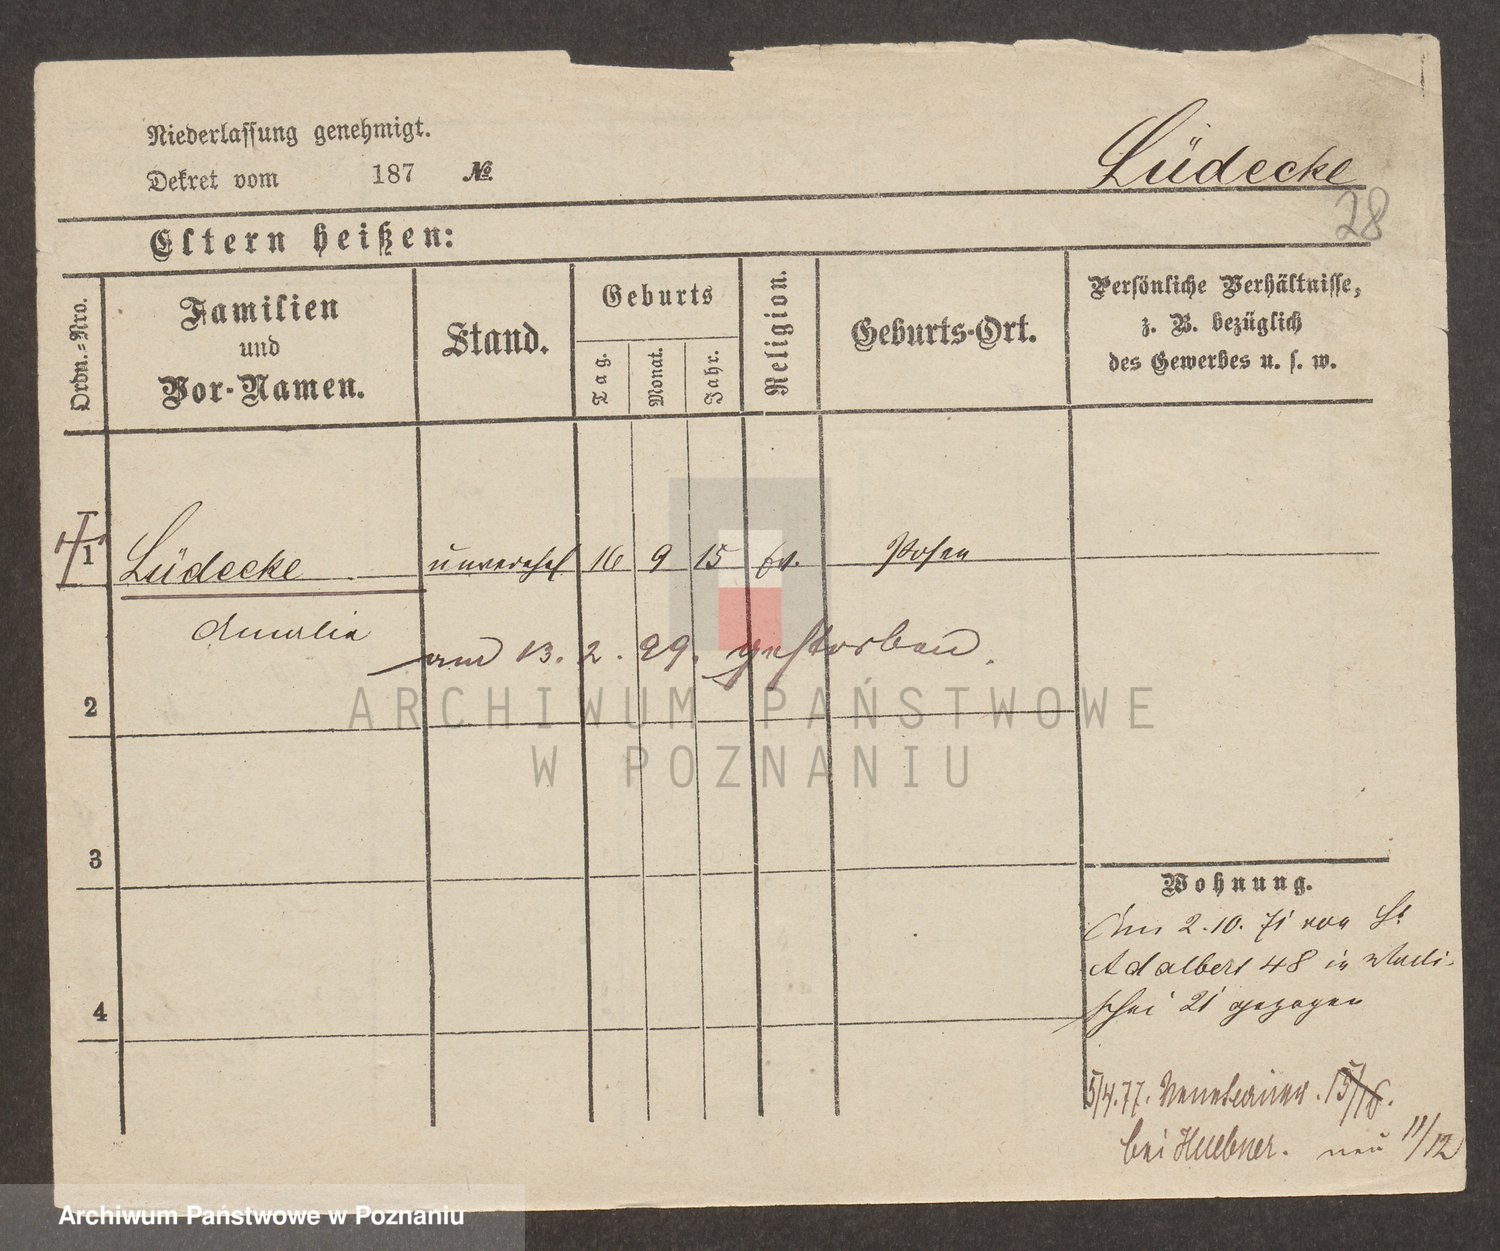 Niederlassung genehmigt.
Dekret vom 187 №
Lüdecke
28
Eltern heißen:
Ordn.-Nro.
Familien
und
Vor-Namen.
Stand.
Geburts
Tag.
Monat.
Jahr.
Religion.
Geburts-Ort.
Persönliche Verhältnisse,
z. B. bezüglich
des Gewerbes u. s. w.
1 Lüdecke unverehel 16 9 15 ev. Posen
Amalia
am 13. 2. 99. gestorben.
2
3
4
Wohnung.
Am 2.10.71 von St
Adalbert 48 in Walli-
schei 21 gezogen
5/4.77. Venetianer. 15/16.
bei Huebner. neu 11/12
ARCHIWUM PAŃSTWOWE
W POZNANIU
Archiwum Państwowe w Poznaniu